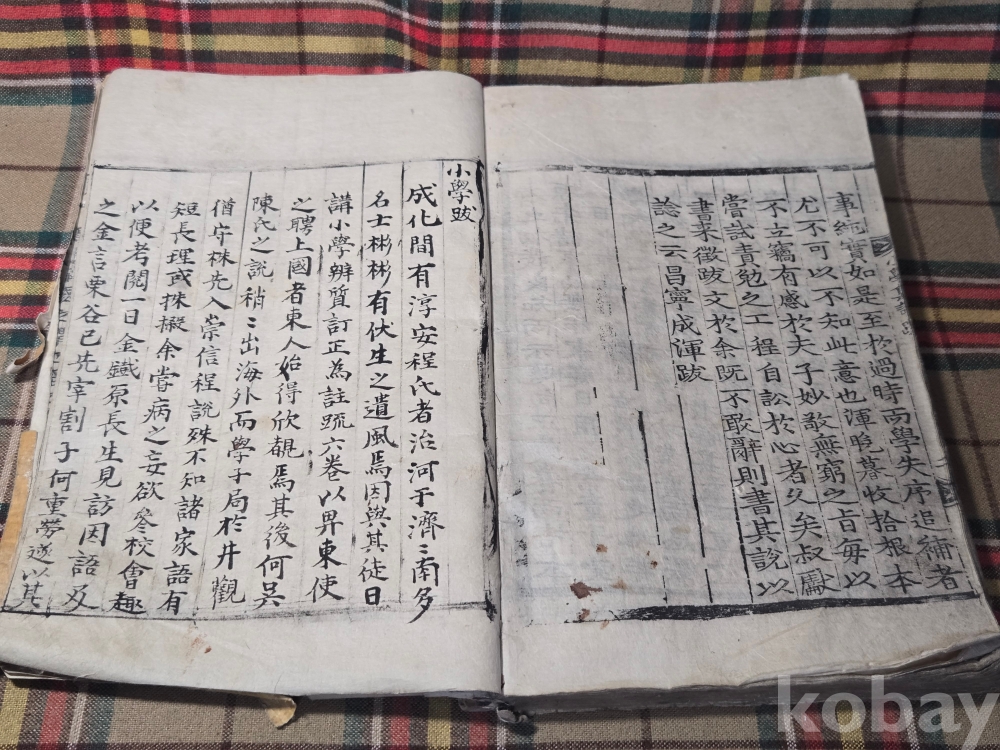 事純實如是至於過時而學失序追補者
尤不可以不知此意也渾晚暮收拾根本
不立竊有感於夫子妙敬無窮之旨每以
嘗試責勉之工程自訟於心者久矣叔獻
書来徵跋文於余既不敢辭則書其說以
諗之云昌寧成渾跋
小學跋
成化間有淳安程氏者治河于濟〻南多
名士彬彬有伏生之遺風焉因與其徒日
講小學辨質訂正為註䟽六卷以畀東使
之聘上國者東人始得欣覩焉其後何吳
陳氏之說稍〻出海外而學子局於井觀
守株先入崇信程說殊不知諸家語有
短長理或採掇余嘗病之妄欲叅校會趣
以便考閱一日金鐵原長生見訪因語及
之金言栗谷已先宰割子何重勞遂以其
kobay